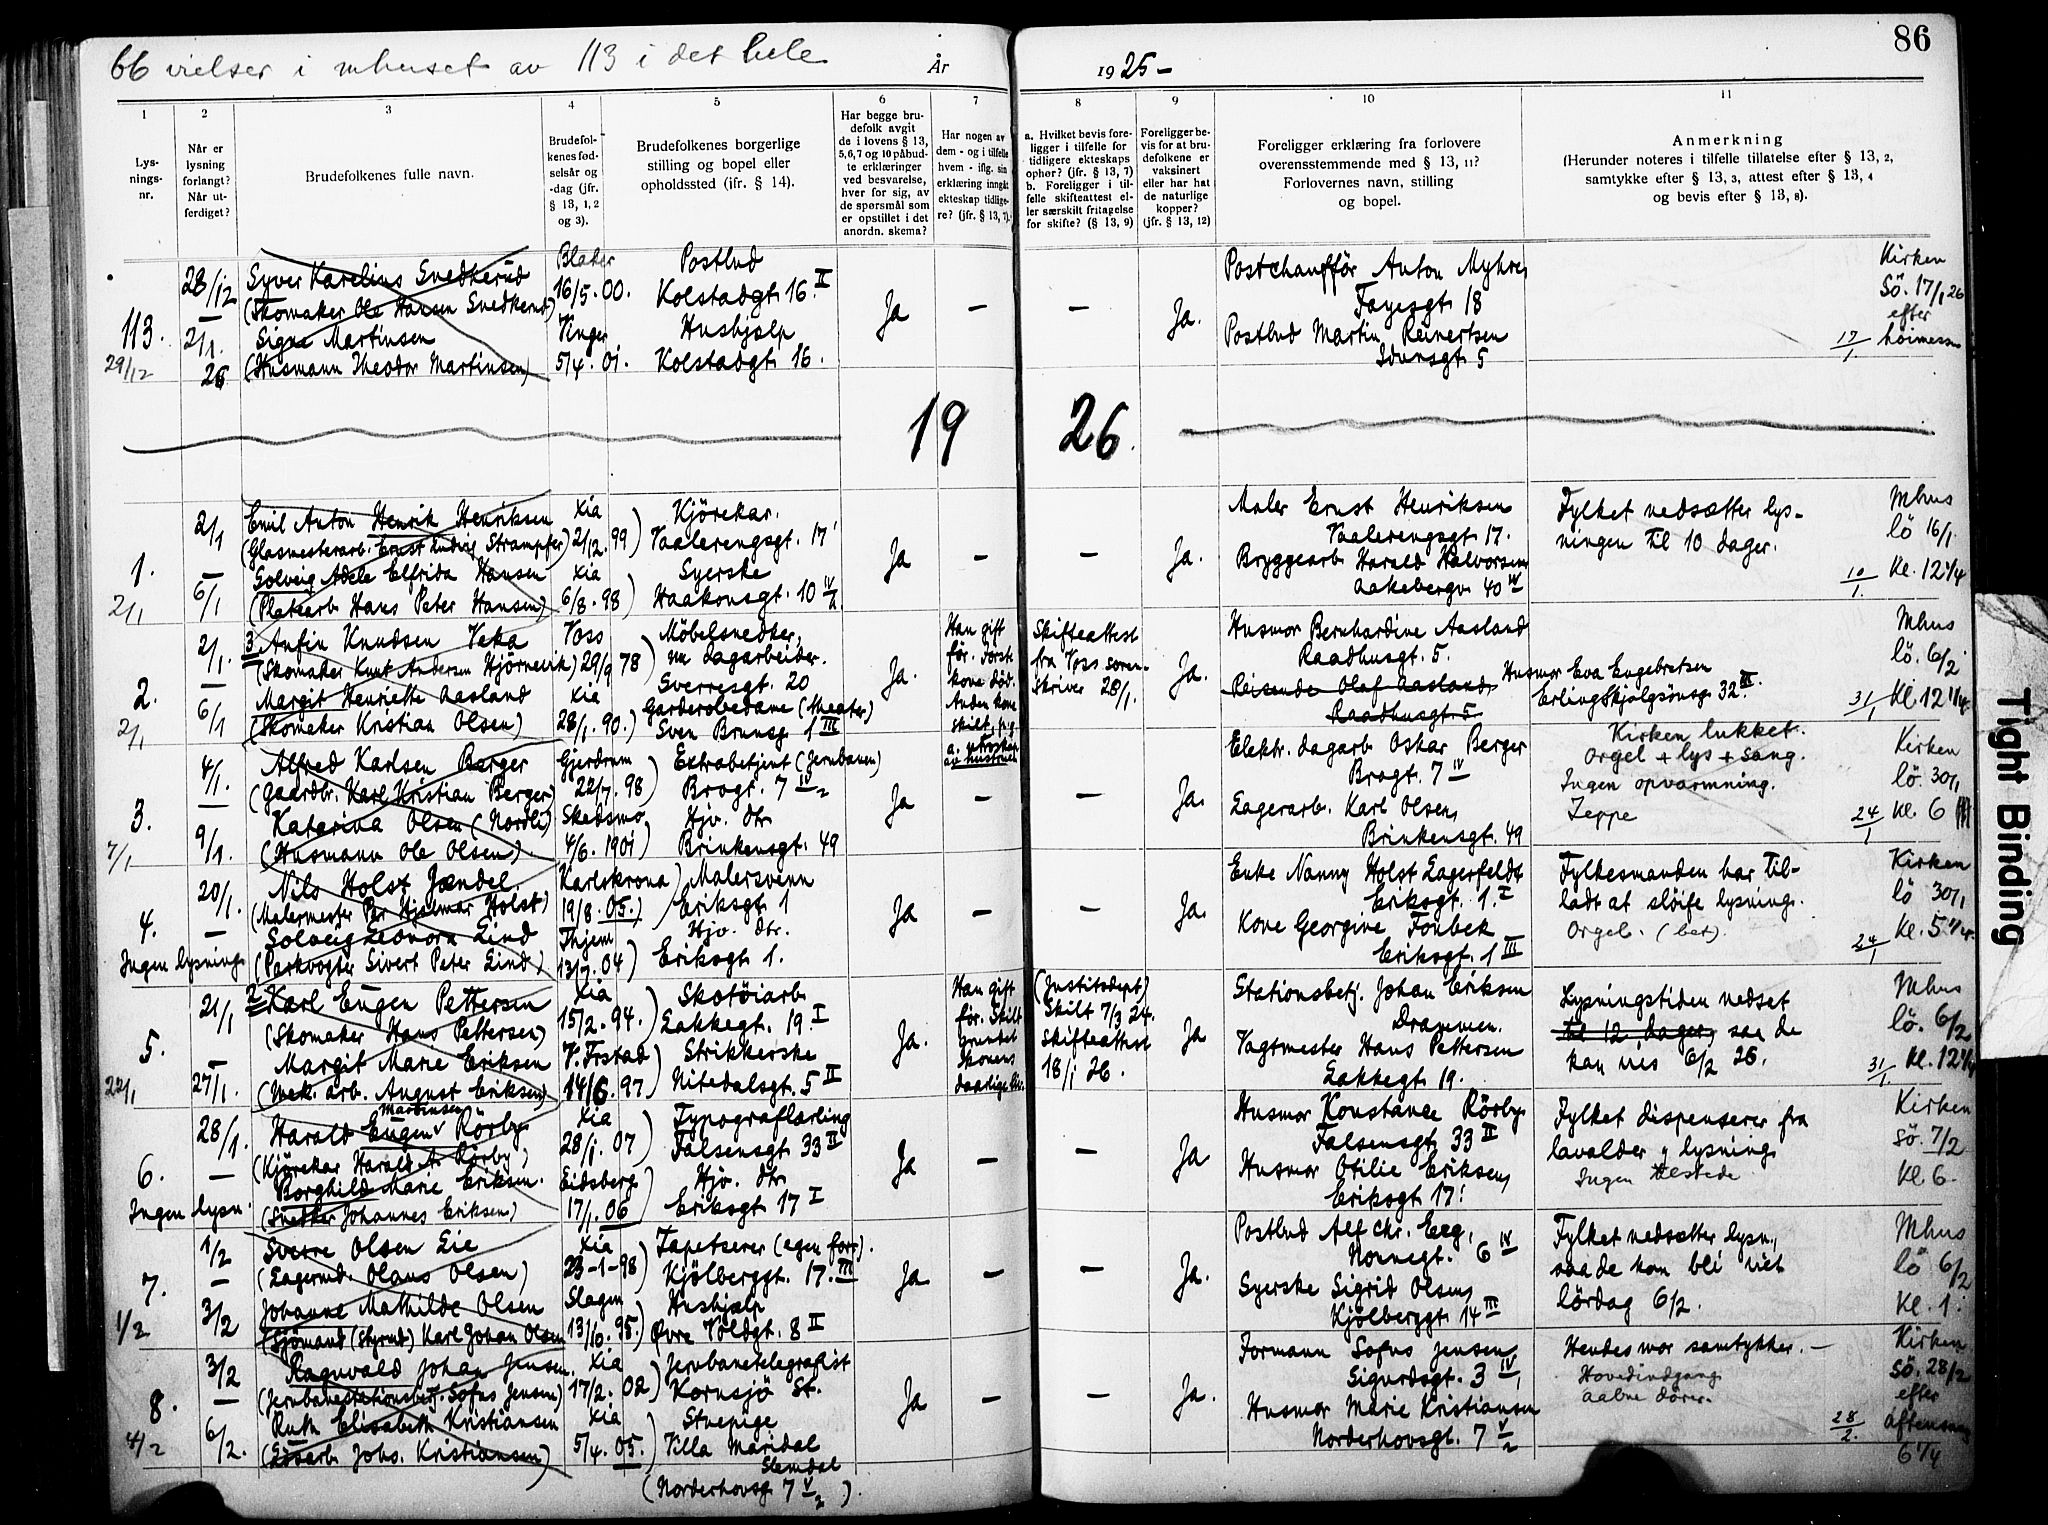 66 vielser i mhuset av 113 i det hele
År
1925 –
86
1
Lys-
nings-
nr.
2
Når er
lysning
forlangt?
Når ut-
ferdiget?
3
Brudefolkenes fulle navn.
4
Brudefol-
kenes fød-
selsår og
-dag (jfr.
§ 13, 1, 2
og 3).
5
Brudefolkenes borgerlige
stilling og bopel eller
opholdssted (jfr. § 14).
6
Har begge bru-
defolk avgit
de i lovens § 13,
5,6,7 og 10 påbud-
te erklæringer
ved besvarelse,
hver for sig, av
de spørsmål som
er opstillet i det
anordn. skema?
7
Har nogen av
dem - og i tilfelle
hvem - iflg. sin
erklæring inngått
ekteskap tidlige-
re? (jfr. § 13, 7).
8
a. Hvilket bevis fore-
ligger i tilfelle for
tidligere ekteskaps
ophør? (jfr. § 13, 7)
b. Foreligger i til-
felle skifteattest el-
ler særskilt fritagelse
for skifte? (§ 13, 9)
9
Foreligger be-
vis for at bru-
defolkene er
vaksinert
eller har hat
de naturlige
kopper?
(jfr. § 13, 12)
10
Foreligger erklæring fra forlovere
overensstemmende med § 13, 11?
Forlovernes navn, stilling
og bopel.
11
Anmerkning
(Herunder noteres i tilfelle tillatelse efter § 13, 2,
samtykke efter § 13, 3, attest efter § 13, 4
og bevis efter § 13, 8).
113.
29/12
28/12
2/1.
26
Syver Karelius Snedkerud
(Skomaker Ole Hansen Snedkerud)
Signe Martinsen
(Husmann Theodor Martinsen)
Blaker
16/5.00.
Vinger
5/4.01.
Postbud
Kolstadgt. 16 II
Hushjælp
Kolstadgt. 16.
Ja
–
–
Ja.
Postchaufför Anton Myhre,
Fayesgt. 18
Postbud Martin Reinertsen
Idunsgt. 5
17/1
Kirken
Sö. 17/1 26
efter
høimessen
19 26.
1.
2/1
2/1
–
6/1
Emil Anton Henrik Henriksen
(Glasmesterarb. Ernst Ludvig Strampfer)
Solveig Adele Elfrida Hansen
(Platearb. Hans Peter Hansen)
Xia
2/12.99)
Xia
6/8.98)
Kjörekar.
Vaalerengsgt. 17
Syerske
Haakonsgt. 10 IV/2
Ja
–
–
Ja.
Maler Ernst Henriksen
Vaalerengsgt. 17.
Bryggearb. Harald Halvorsen
Aakebergv. 40 IV
Fylket nedsætter lys-
ningen til 10 dager.
10/1.
Mhus
lö 16/1
Kl. 12 1/4
2.
2/1
2/1.
–
6/1
3 Anfin Knudsen Veka
(Skomaker Knut Andersen Hjörnevik)
Margit Henriette Aasland
(Skomaker Kristian Olsen)
Voss
29/9 78)
Xia
28/1.90.)
Möbelsnedker,
nu dagarbeider.
Sverresgt. 20
Garderobedame (Theater)
Sven Brunsg. 1 III
Ja.
Han gift
för. Förste
kone död.
Anden kone
skilt, p.g.
a. utroskap
av hustruen
Skifteattest
fra Voss soren-
skriver 28/1.
Ja.
Husmor Bernhardine Aasland
Raadhusgt. 5.
Reisende Olaf Aasland,
Raadhusgt. 5
Husmor Eva Engebretsen
Erling Skjalgsönsg. 32 III.
31/1
Mhus
lö. 6/2
Kl. 12 1/4.
3.
7/1
4/1.
–
9/1.
Alfred Karlsen Berger
(Gaardbr. Karl Kristian Berger)
Katarina Olsen (Nordli)
(Husmann Ole Olsen)
Gjerdrum
22/7.98)
Skedsmo
4/6.1901)
Extrabetjent (Jernbanen)
Brogt. 7 IV/2
Hjv. dtr
Brinkensgt. 49
Ja
–
–
Ja.
Elektr. dagarb. Oskar Berger
Brogt. 7 IV
Lagerarb. Karl Olsen,
Brinkensgt. 49
Kirken lukket.
Orgel + lys + sang.
Ingen opvarmning.
Teppe
24/1
Kirken
lö. 30/1
Kl. 6
4.
Ingen lysning.
20/1.
–
Nils Holst Jændel.
(Malermester Per Hjalmar Holst)
Solveig Leonora Lind
(Parkvogter Sivert Peter Lind)
Karlskrona
19/8.05.)
Thjem
13/7.04)
Malersvenn
Eriksgt. 1
Hjv. dtr.
Eriksgt. 1.
Ja
–
–
Ja.
Enke Nanny Holst Lagerfeldt
Eriksgt. 1. I
Kone Georgine Fonbek
Eriksgt. 1 III
Fylkesmanden har til-
ladt at slöife lysning.
Orgel. (bet).
24/1
Kirken
lö 30/1
Kl. 5 1/4.
5.
22/1
21/1
–
27/1.
2 Karl Eugen Pettersen
(Skomaker Hans Pettersen)
Margit Marie Eriksen
(Mek. arb. August Eriksen)
Xia
15/2.94.)
14/6.97)
Skotöiarb.
Lakkegt. 19. I
Strikkerske
Nitedalsgt. 5 II
Ja.
Han gift
för. Skilt
grundet
konens
(Justitsdept)
Skilt 7/3 24.
Skifteattest
18/1 26.
Ja
Stationsbetj. Johan Eriksen
Drammen.
Vagtmester Hans Pettersen
Lakkegt. 19.
Lysningstiden nedset
til 12 dager, saa de
kan vies 6/2 26.
31/1.
Mhus
lö. 6/2
Kl. 12 1/4
6.
Ingen lysn.
28/1.
–
Martinsen
Harald Eugen Rörby
(Kjörekar Harald A. Rörby)
Borghild Marie Eriksen.
(Snedker Johannes Eriksen)
Xia
28/1.07)
Eidsberg
17/1.06)
Typograflærling
Falsensgt. 33 II
Hjv. dtr
Eriksgt. 17 I
Ja
–
–
Ja
Husmor Konstance Rörby,
Falsensgt. 33 II
Husmor Otilie Eriksen,
Eriksgt. 17 I
Fylket dispenserer fra
lavalder og lysning.
Ingen tilstede
Kirken
sö. 7/2
Kl. 6.
7.
1/2
1/2
–
3/2
Sverre Olsen Lie
(Lagermd. Olaus Olsen)
Johanne Mathilde Olsen
(Sjömand (Styrmd) Karl Johan Olsen
Xia
23-1-98)
Slagen
13/10.95.)
Tapetserer (egen forr).
Kjölberggt. 17. III
Hushjælp
Övre Voldgt. 8 II
Ja
–
–
Ja.
Postbud Alf Chr. Eeg,
Nornegt. 6 IV
Syerske Sigrid Olsen,
Kjölberggt. 14 III
Fylket nedsætter lysn.,
saa de kan bli viet
lördag 6/2.
Mhus
lö 6/2
Kl. 1.
8.
4/2
3/2
–
6/2.
Ragnvald Johan Jensen.
(Jernbanestationsbetj. Sofus Jensen)
Ruth Elisabeth Kristiansen
(Losarb. Johs. Kristiansen)
Xia
17/2.02)
Xia
5/4.05.)
Jernbanetelegrafist
Kornsjö St.
Stuepige
Villa Maridal
Slemdal
(Norderhovsg. 7 V/2).
Ja
–
–
Ja.
Formann Sofus Jensen,
Sigurdsgt. 3 IV,
Husmor Marie Kristiansen
Norderhovsgt. 7 V/2
Hendes mor samtykker. –
Hovedindgang
aabne dörer.
28/2.
Kirken
Sö. 28/2
efter
aftensang
6 1/4
Tight Binding